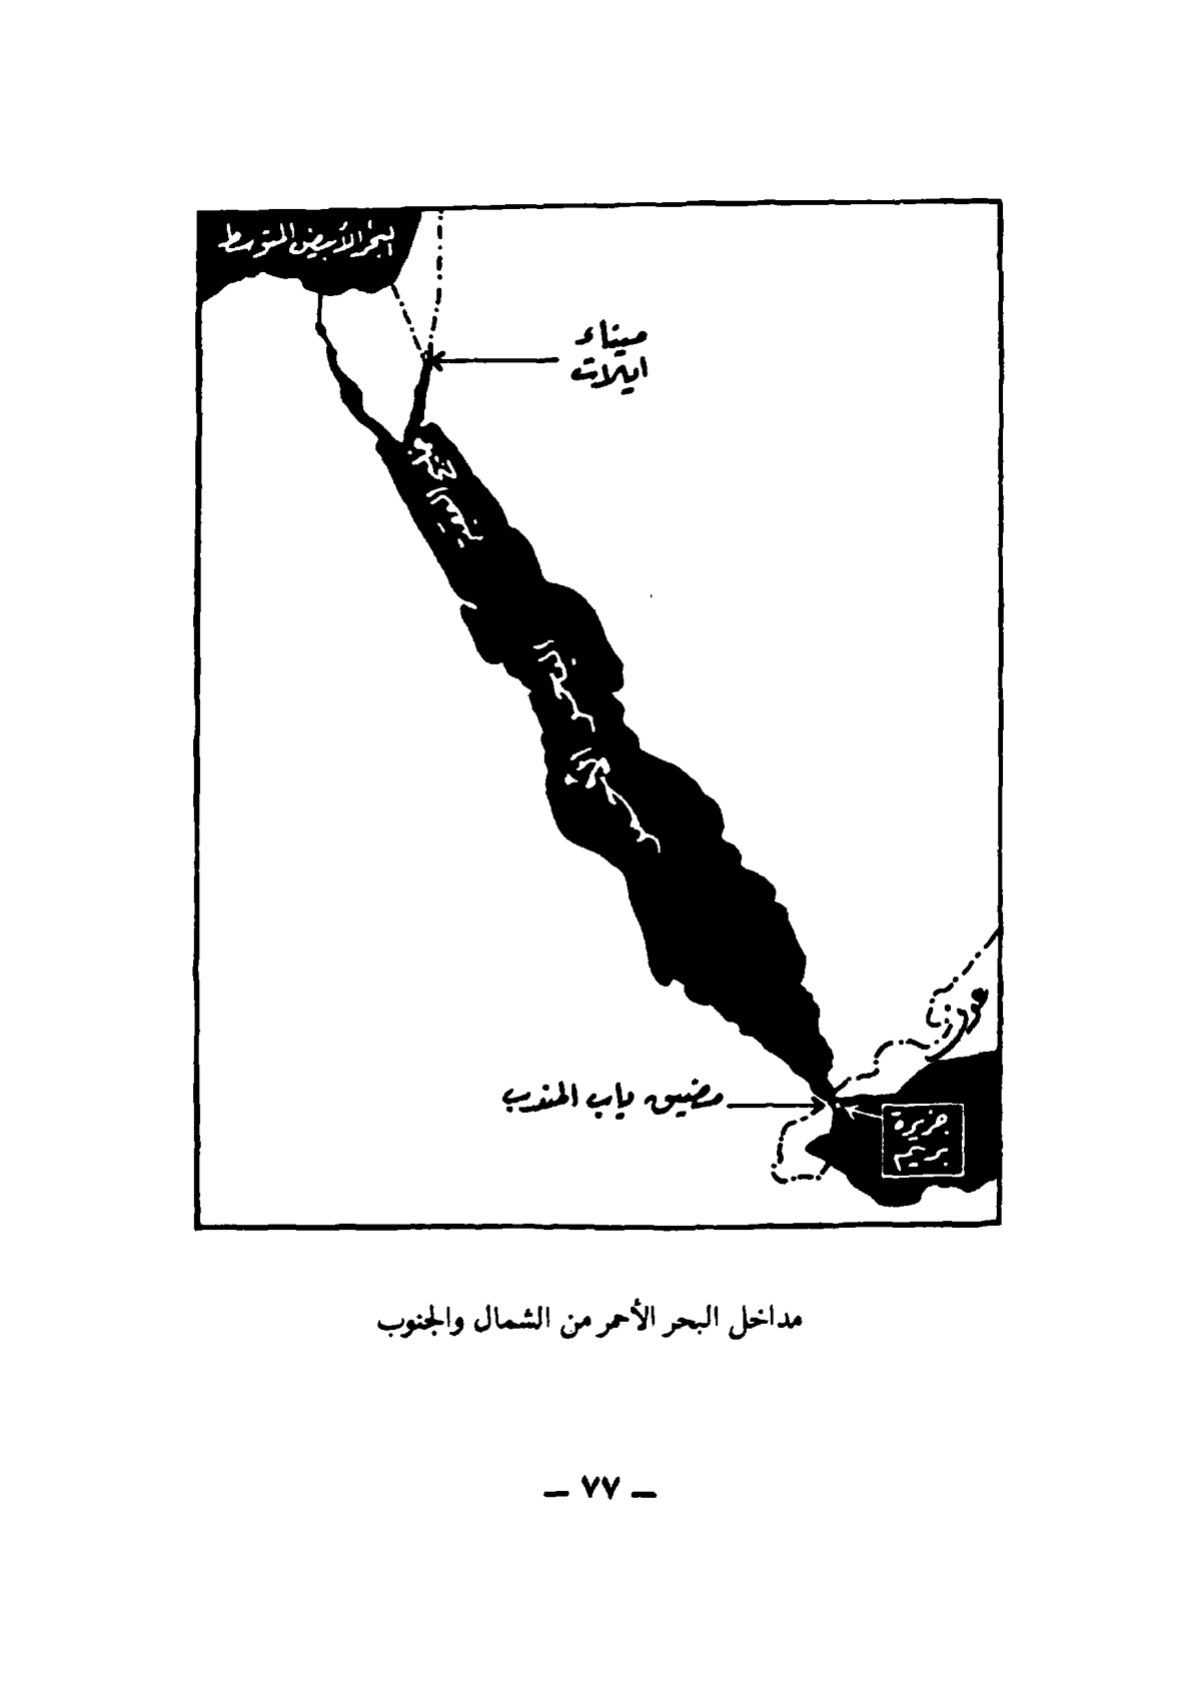 البحر الأبيض المتوسط
ميناء
ايلات
البحر
الأحمر
مضيق باب المندب
جزيرة
بريم
مداخل البحر الأحمر من الشمال والجنوب
– ٧٧ –